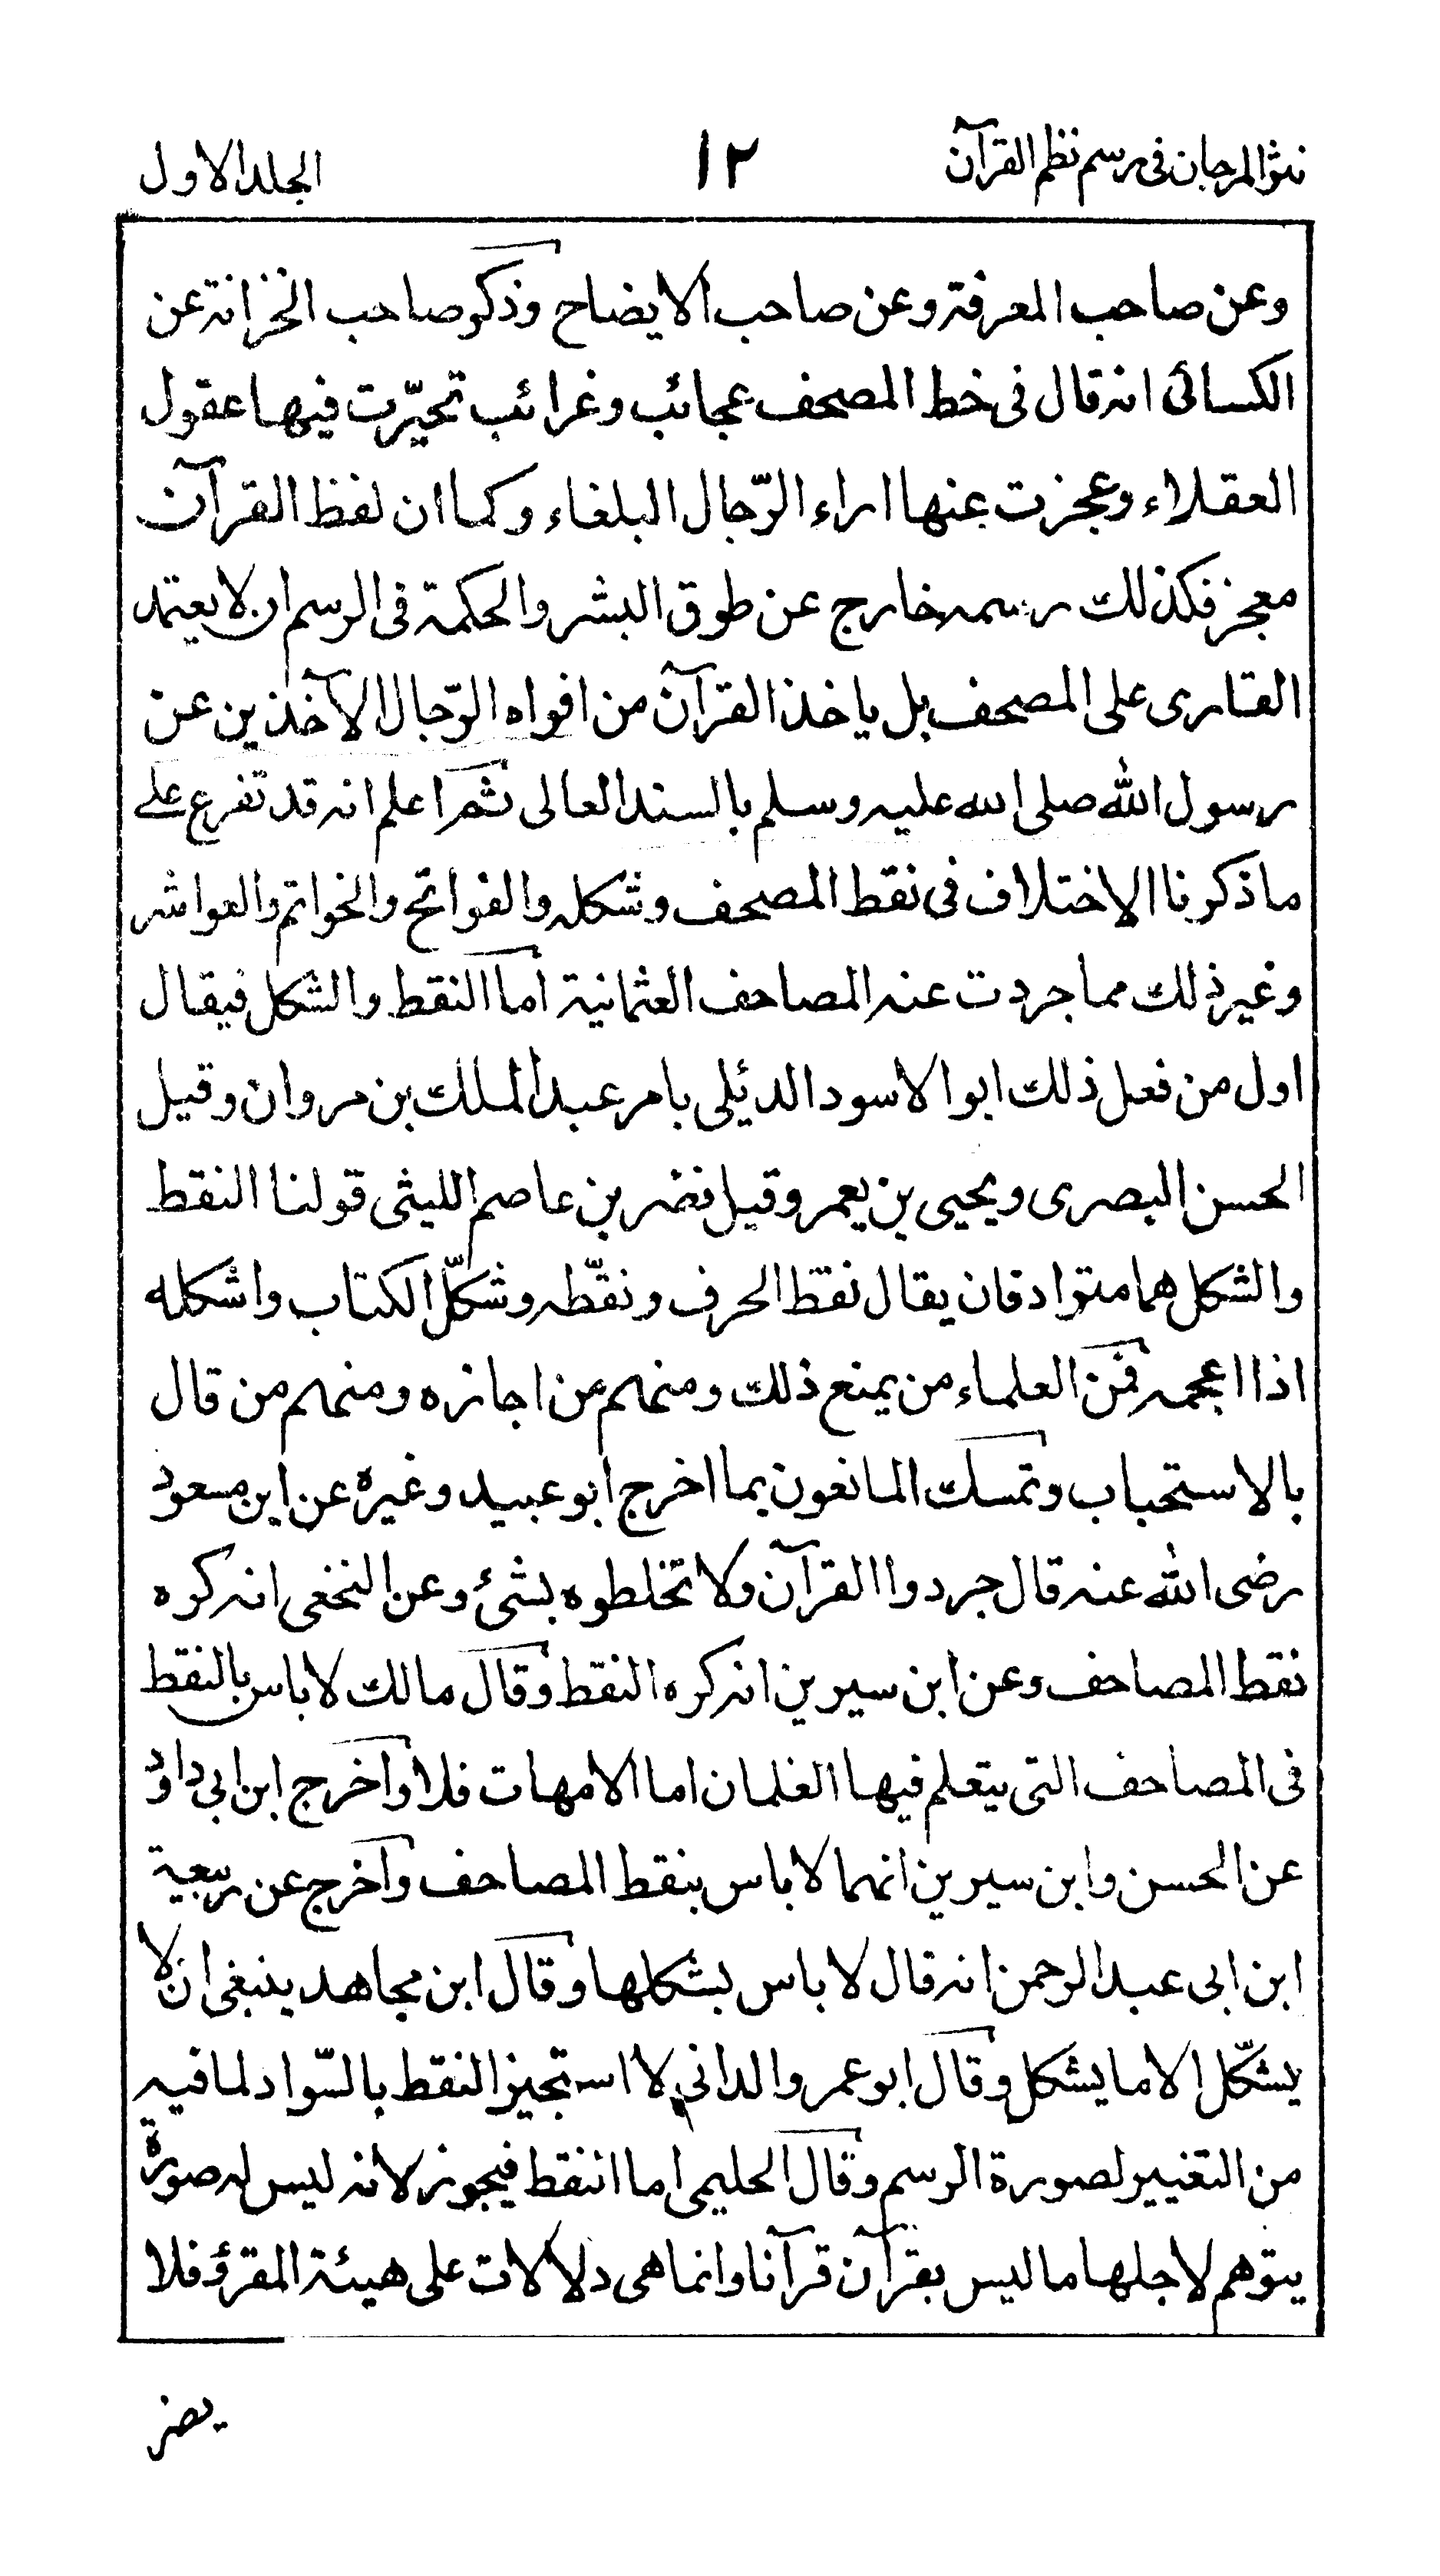 نثر المرجان في رسم نظم القرآن
١٢
الجلد الاول
وعن صاحب المعرفة وعن صاحب الايضاح وذكر صاحب الخزانة عن
الكسائى انه قال فى خط المصحف عجائب وغرائب تحيّرت فيها عقول
العقلاء وعجزت عنها اراء الرّجال البلغاء وكما ان لفظ القرآن
معجز فكذلك رسمه خارج عن طوق البشر والحكمة فى الرسم ان لا يعتمد
القارى على المصحف بل ياخذ القرآن من افواه الرّجال الآخذين عن
رسول الله صلى الله عليه وسلم بالسند العالى ثم اعلم انه قد تفرع على
ما ذكرنا الاختلاف فى نقط المصحف وشكله والفواتح والخواتم والعواشر
وغير ذلك مما جردت عنه المصاحف العثمانية اما النقط والشكل فيقال
اول من فعل ذلك ابو الاسود الدئلى بامر عبد الملك بن مروان وقيل
الحسن البصرى ويحيى بن يعمر وقيل نضر بن عاصم الليثى قولنا النقط
والشكل هما مترادفان يقال نقط الحرف ونقّطه وشكّل الكتاب واشكله
اذا اعجمه فمن العلماء من يمنع ذلك ومنهم من اجازه ومنهم من قال
بالاستحباب وتمسك المانعون بما اخرج ابو عبيد وغيره عن ابن مسعود
رضى الله عنه قال جردوا القرآن ولا تخلطوه بشئ وعن النخعى انه كره
نقط المصاحف وعن ابن سيرين انه كره النقط وقال مالك لا باس بالنقط
فى المصاحف التى يتعلم فيها الغلمان اما الامهات فلا واخرج ابن ابى داؤد
عن الحسن وابن سيرين انهما لا باس بنقط المصاحف واخرج عن ربيعة
ابن ابى عبد الرحمن انه قال لا باس بشكلها وقال ابن مجاهد ينبغى ان لا
يشكّل الا ما يشكل وقال ابو عمرو الدانى لا استجيز النقط بالسّواد لما فيه
من التغيير لصورة الرسم وقال الحليمى اما النقط فيجوز لانه ليس له صورة
يتوهم لاجلها ما ليس بقرآن قرآنا وانما هى دلالات على هيئة المقرؤ فلا
يضر